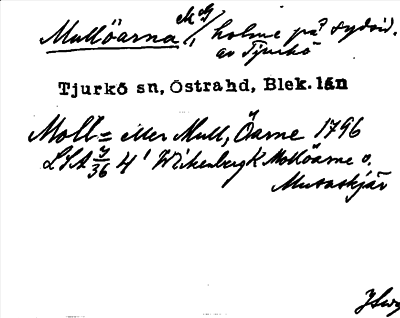 Mullöarna holme på sydsid.
av Tjurkö
Tjurkö sn, Östrahd, Blek. län
Moll= eller Mull, Öarne 1796
LSA 7/36 4' Wikenberg K Mollöarne o.
Musaskjär